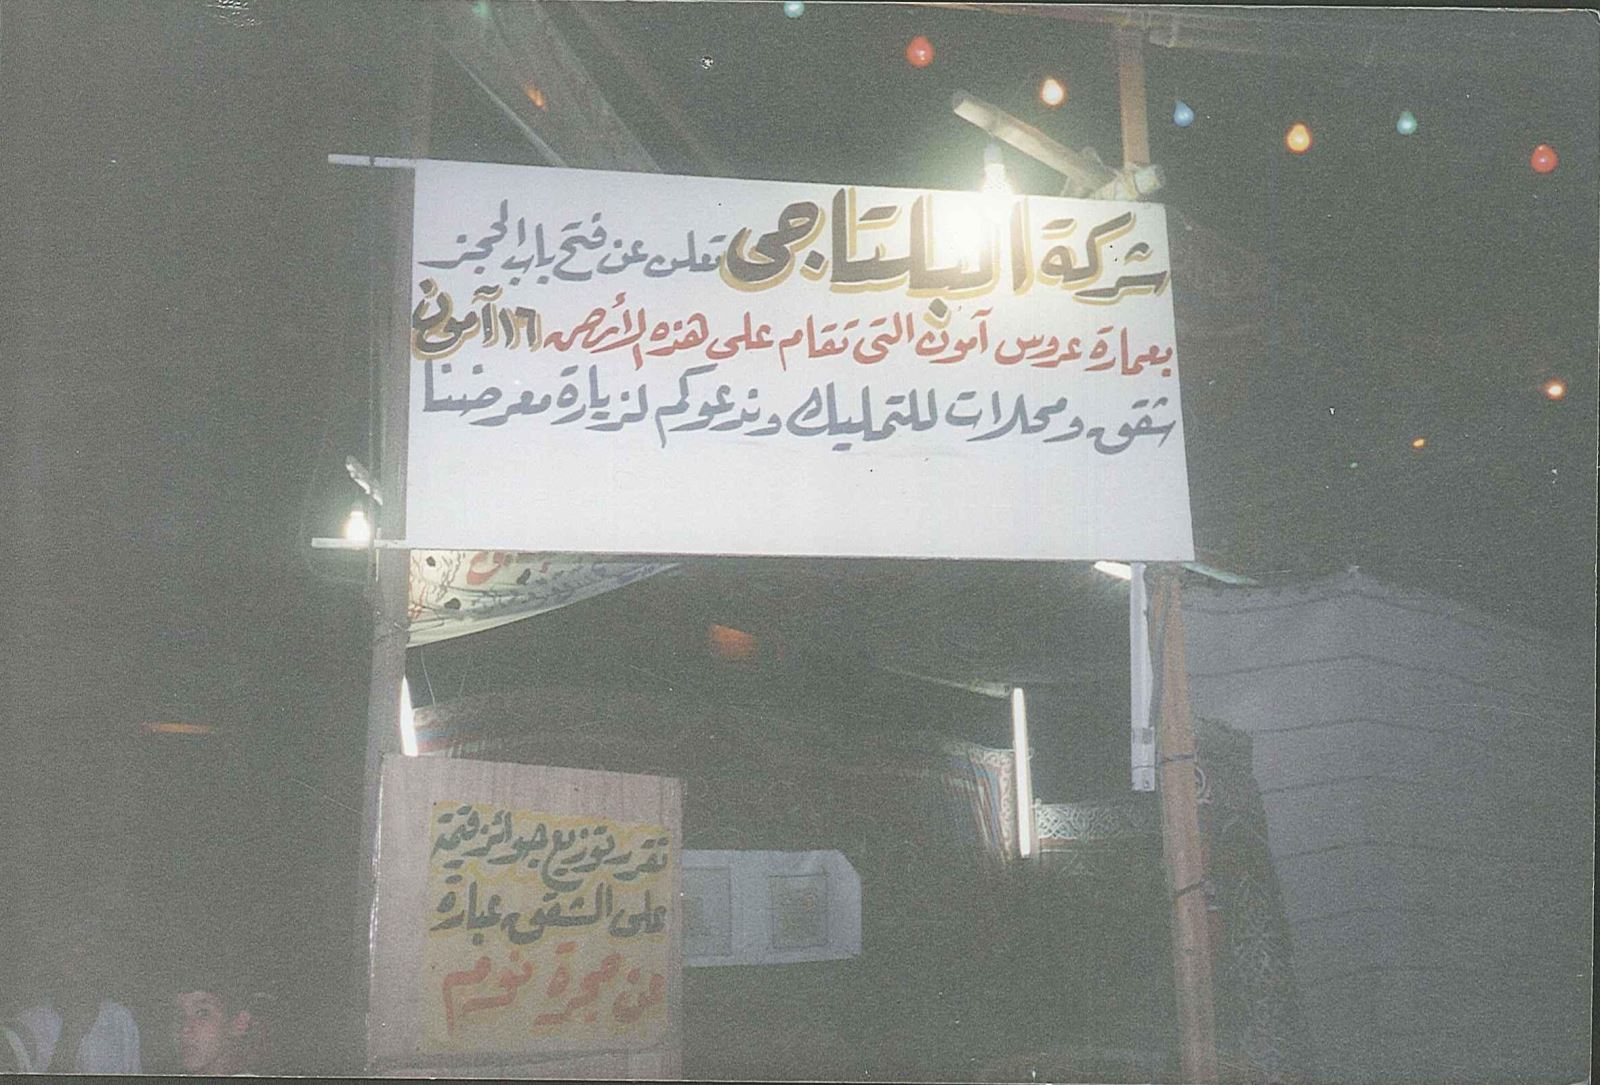 شركة البلتاجى تعلن عن فتح باب الحجز
بعمارة عروس آمون التى تقام على هذه الأرض ١٦ آمون
شقق ومحلات للتمليك وندعوكم لزيارة معرضنا
تقرر توزيع جوائز قيمة
على الشقق عبارة
عن حجرة نوم